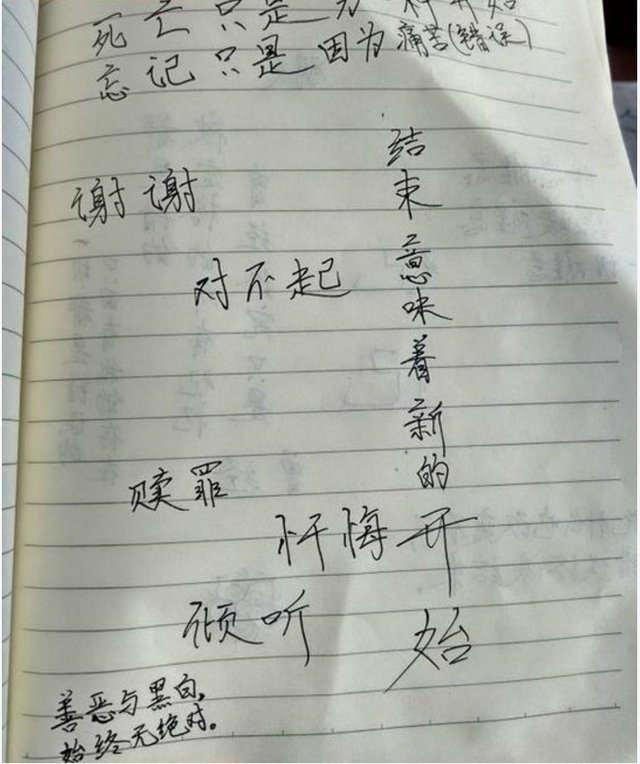 死亡只是另一种开始
忘记只是因为痛苦(错误)
谢谢
对不起
结束意味着新的开始
赎罪
忏悔
倾听
善恶与黑白,
始终无绝对。